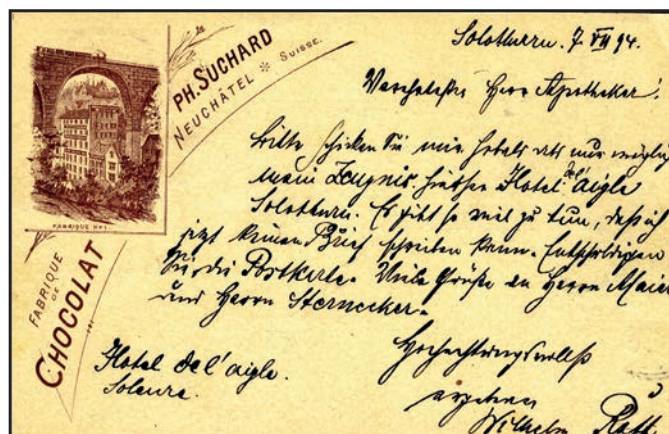 PH. SUCHARD
NEUCHÂTEL * SUISSE.
FABRIQUE No 1
FABRIQUE
DE
CHOCOLAT
Solothurn. 7 VII 94.
Verehrtester Herr Apotheker!
Bitte schicken Sie mir sobald als nur möglich
mein Zeugnis hierher Hotel de l'aigle
Solothurn. Es gibt so viel zu tun, daß ich
jetzt keinen Brief schreiben kann. Entschuldigen
Sie die Postkarte. Viele Grüße an Herrn Maier
und Herrn Sternecker.
Hochachtungsvollst
ergebener
Wilhelm
Hotel de l'aigle.
Soleure.